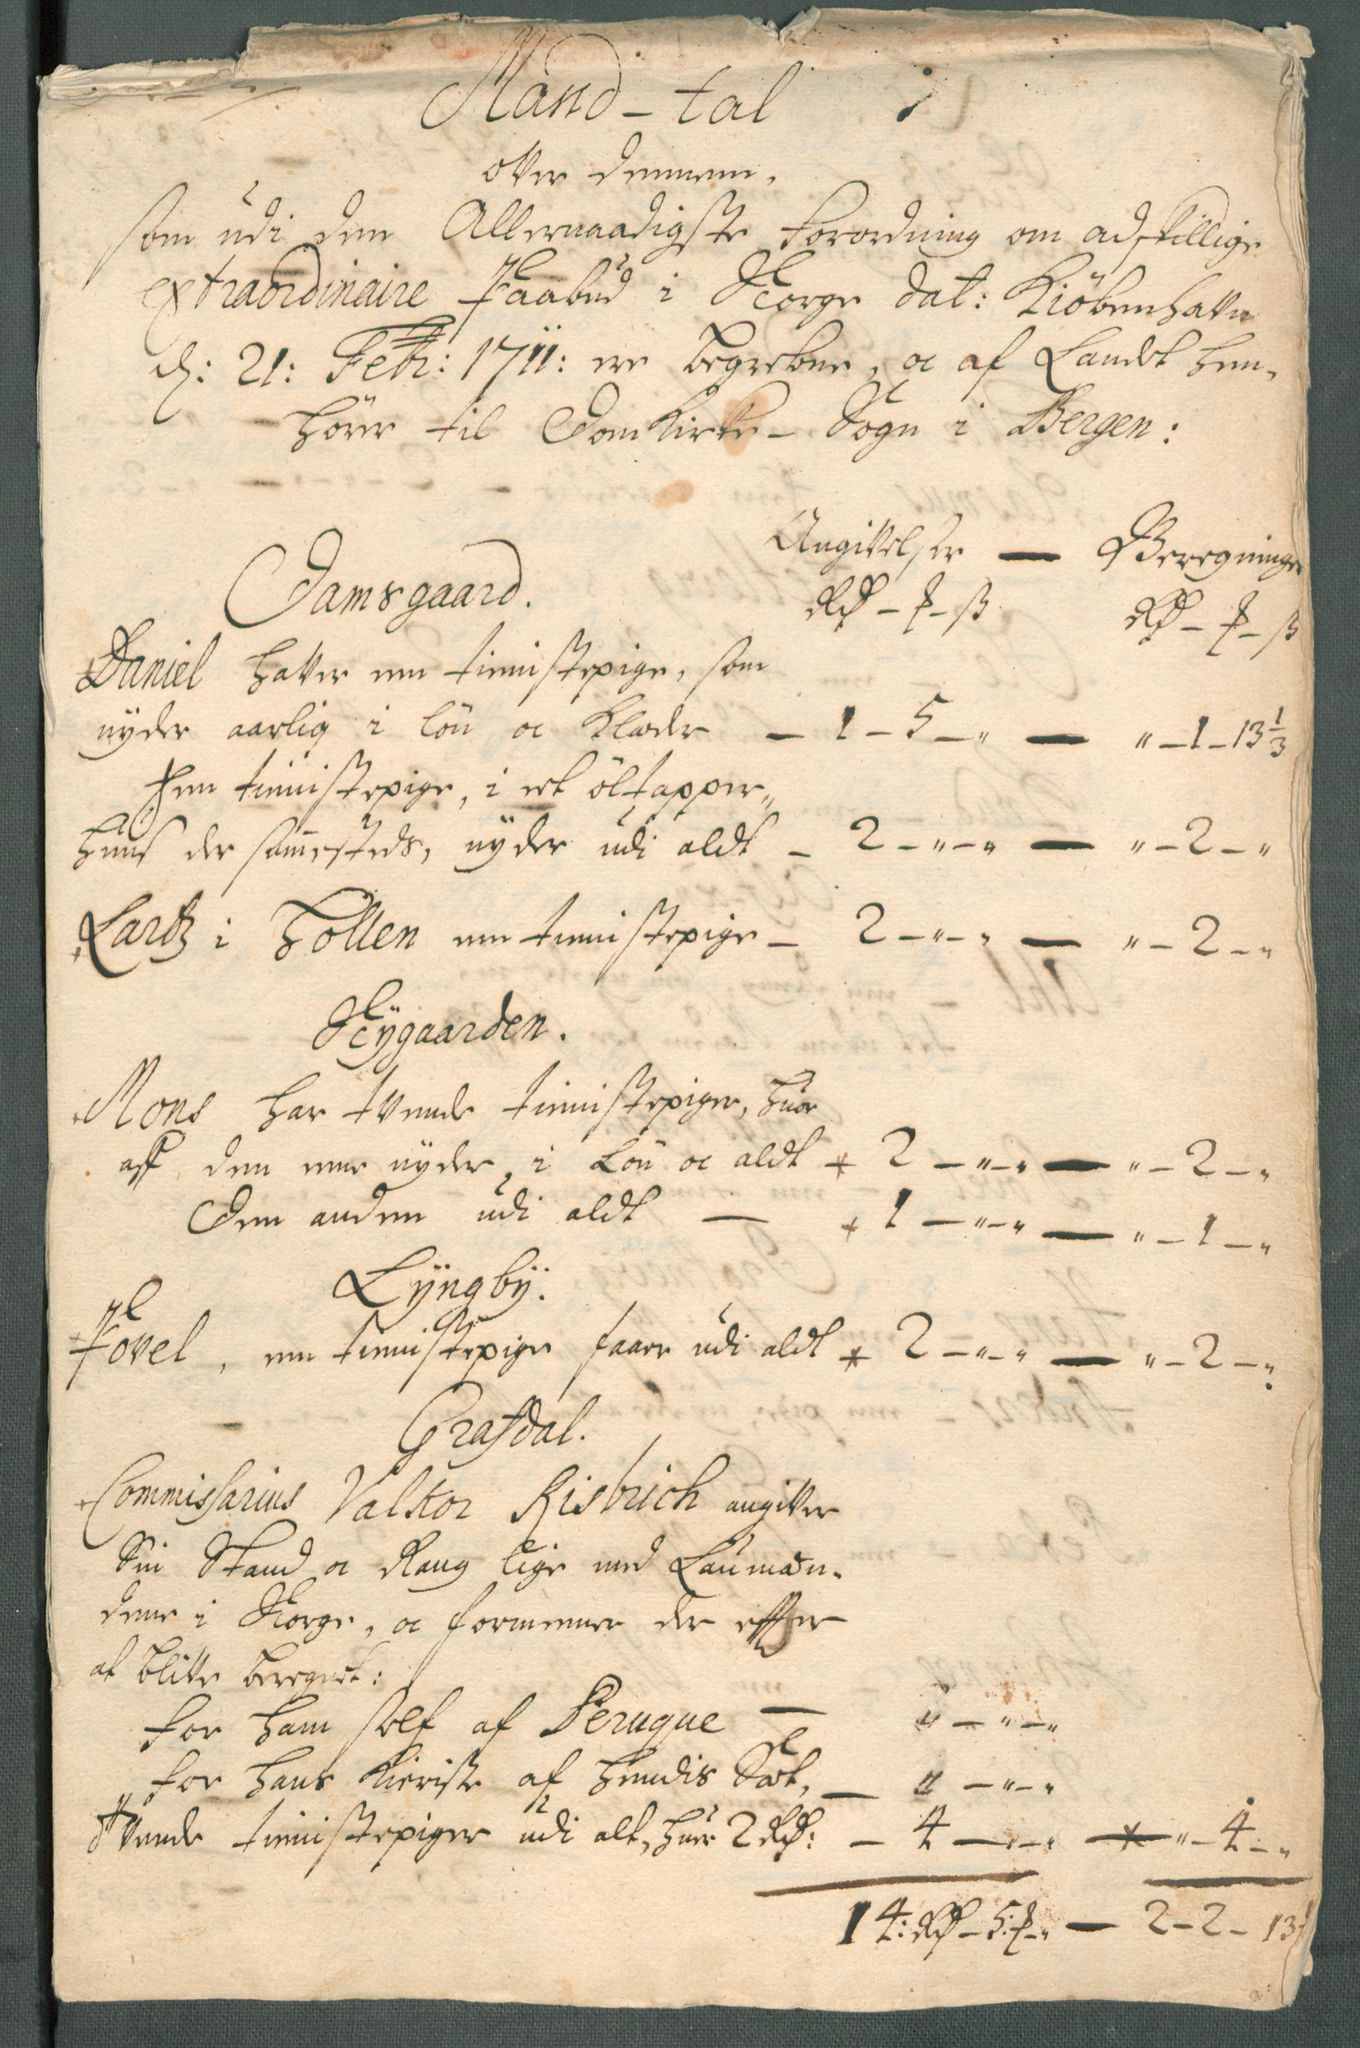 Mand-tal
over dennem,
som udi den Allernaadigste forordning om adskillige
extraordinaire Paabud i Norge dat: Kiöbenhavn
d: 21: Febr: 1711: ere begrebne, oc af Landet hen-
hörer til Domkirke-Sogn i Bergen:
Angivelser — Beregninger
Damsgaard.
Rd - # - ß Rd - # - ß
Daniel haver een tienistepige, som
nyder aarlig i lön oc klæder — 1 - 5 - " — " - 1 - 13 1/3
Een tienistepige, i et öltapper-
huus der sammesteds, nyder udi aldt - 2 - " - " — " - 2 - "
Lartz i Hollen een tienistepige - 2 - " - " — " - 2 - "
Nygaarden.
Mons har tvende tienistepiger, huor
aff den eene nyder, i Lön oc aldt + 2 - " - " — " - 2 - "
Den anden udi aldt — + 1 - " - " — " - 1 - "
Lyngby.
Povel, een tienistepige faaer udi aldt + 2 - " - " — " - 2 - "
Grafdal.
Commissarius Valkor Risbrich angiver
Sin Stand oc Rang lige med Laumæn-
dene i Norge, oc formeener der effter
at blive beregnet:
for ham self af Peruque — " - " - "
for hans Kieriste af hendis Sæt, — " - " - "
tvende tienistepiger udi alt, huer 2 Rd: - 4 - " - " — " - 4 - "
14: Rd - 5: # - " — 2 - 2 - 13 1/3